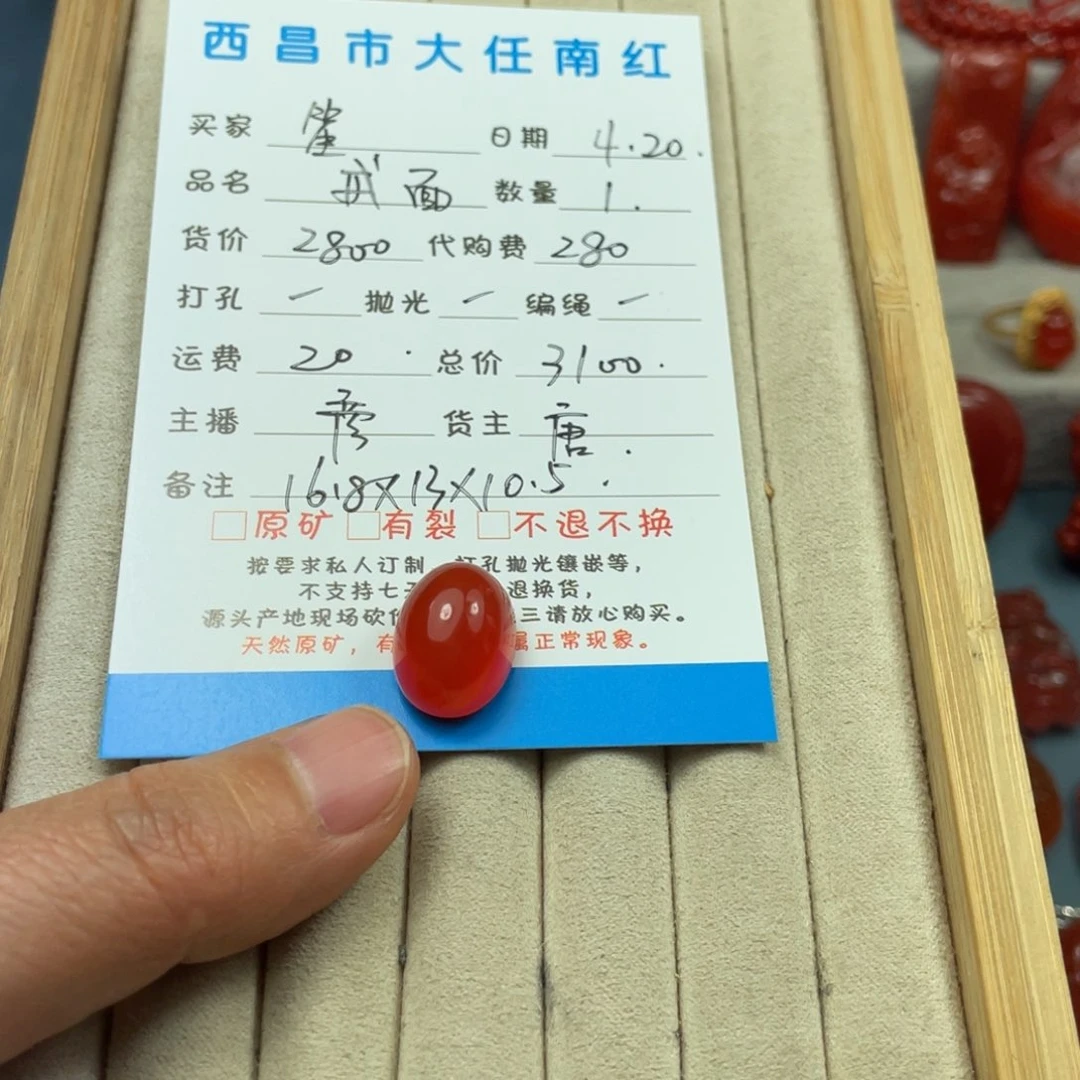 西昌市大任南红
买家 日期 4.20.
品名 戒面 数量 1.
货价 2800 代购费 280
打孔 — 抛光 — 编绳 —
运费 20 . 总价 3100.
主播 货主 唐.
备注 16.8X13X10.5.
□原矿 □有裂 □不退不换
按要求私人订制 打孔抛光镶嵌等，
不支持七 退换货，
源头产地现场砍 三请放心购买。
天然原矿，有 属正常现象。